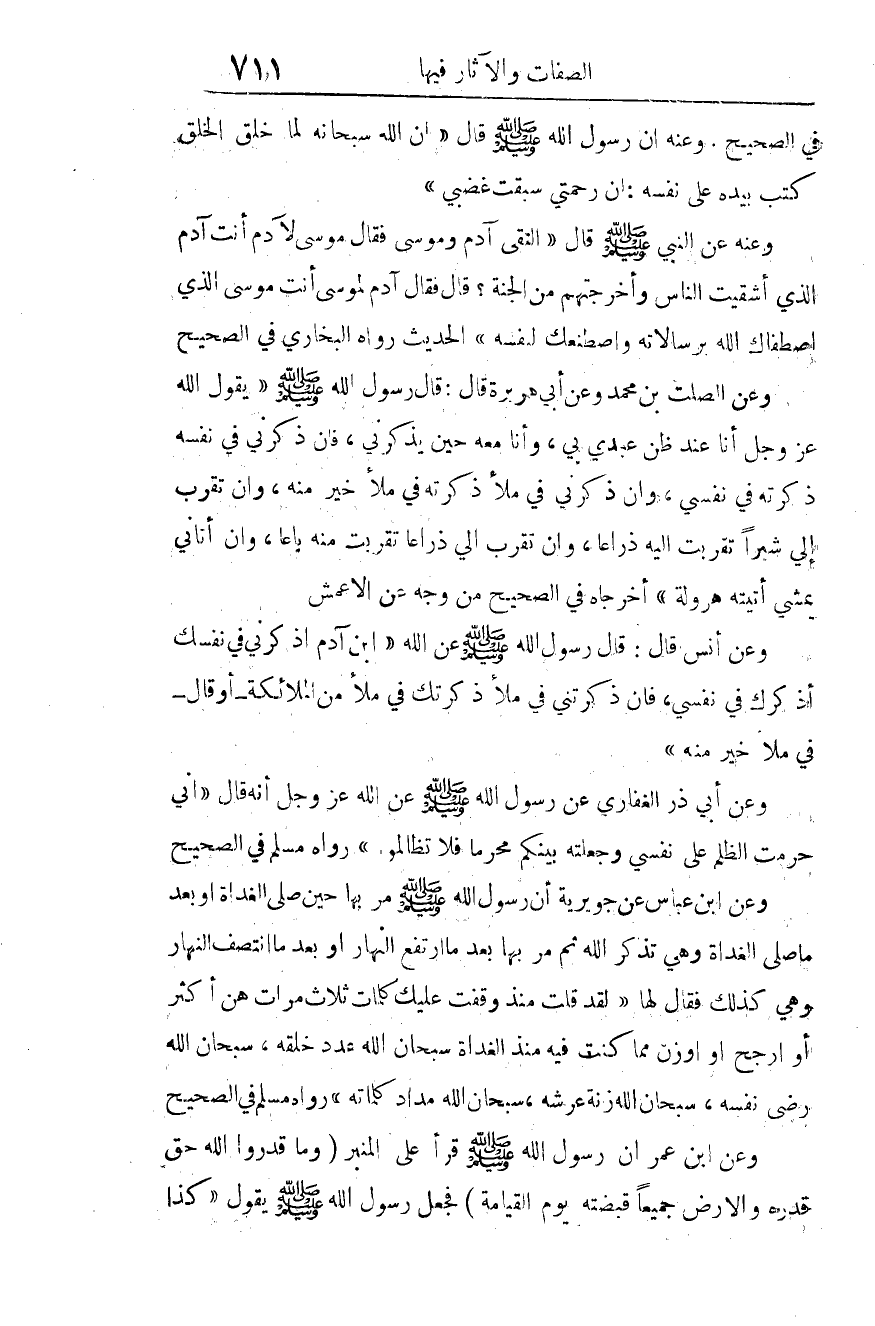 الصفات والآثار فيها ٧١١
في الصحيح . وعنه ان رسول الله ﷺ قال « ان الله سبحانه لما خلق الخلق
كتب بيده على نفسه : ان رحمتي سبقت غضبي »
وعنه عن النبي ﷺ قال « التقى آدم وموسى فقال موسى لآدم أنت آدم
الذي أشقيت الناس وأخرجتهم من الجنة ؟ قال فقال آدم لموسى أنت موسى الذي
اصطفاك الله برسالاته واصطنعك لنفسه » الحديث رواه البخاري في الصحيح
وعن الصلت بن محمد وعن أبي هريرة قال : قال رسول الله ﷺ « يقول الله
عز وجل أنا عند ظن عبدي بي ، وأنا معه حين يذكرني ، فان ذكرني في نفسه
ذكرته في نفسي ، وان ذكرني في ملأ ذكرته في ملأ خير منه ، وان تقرب
إلي شبراً تقربت اليه ذراعا ، وان تقرب الي ذراعا تقربت منه باعا ، وان أتاني
يمشي أتيته هرولة » أخرجاه في الصحيح من وجه عن الاعمش
وعن أنس قال : قال رسول الله ﷺ عن الله « ابن آدم اذكرني في نفسك
أذكرك في نفسي، فان ذكرتني في ملأ ذكرتك في ملأ من الملائكة ـ أو قال ـ
في ملأ خير منه »
وعن أبي ذر الغفاري عن رسول الله ﷺ عن الله عز وجل أنه قال « اني
حرمت الظلم على نفسي وجعلته بينكم محرما فلا تظالموا » رواه مسلم في الصحيح
وعن ابن عباس عن جويرية أن رسول الله ﷺ مر بها حين صلى الغداة او بعد
ماصلى الغداة وهي تذكر الله ثم مر بها بعد ما ارتفع النهار او بعد ما انتصف النهار
وهي كذلك فقال لها « لقد قلت منذ وقفت عليك كلمات ثلاث مرات هن أكثر
أو ارجح او اوزن مما كنت فيه منذ الغداة سبحان الله عدد خلقه ، سبحان الله
رضى نفسه ، سبحان الله زنة عرشه ، سبحان الله مداد كلماته » رواه مسلم في الصحيح
وعن ابن عمر ان رسول الله ﷺ قرأ على المنبر ( وما قدروا الله حق
قدره والارض جميعاً قبضته يوم القيامة ) فجعل رسول الله ﷺ يقول « كذا